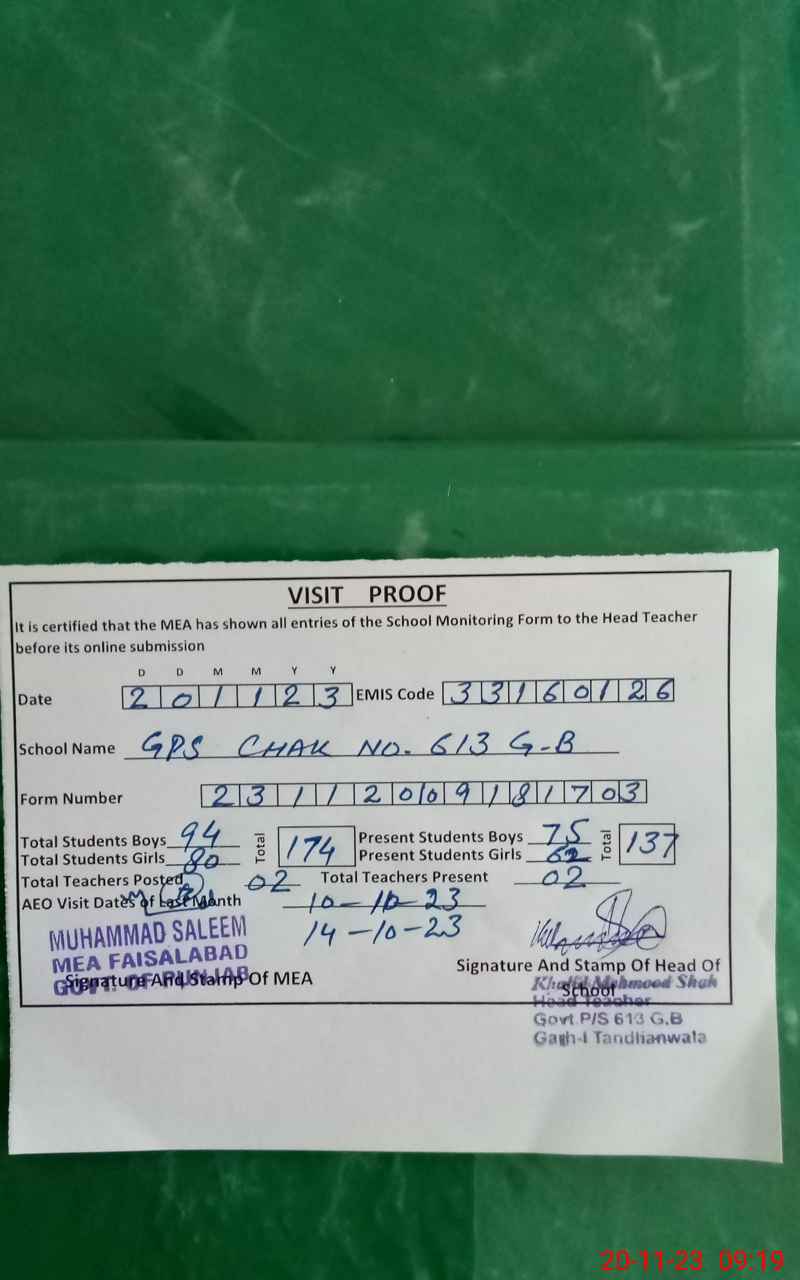 VISIT PROOF
It is certified that the MEA has shown all entries of the School Monitoring Form to the Head Teacher
before its online submission
D D M M Y Y
Date 201123 EMIS Code 33160126
School Name GPS CHAK NO. 613 G-B
Form Number 23112009181703
Total Students Boys 94 Total 174 Present Students Boys 75 Total 137
Total Students Girls 80 Present Students Girls 62
Total Teachers Posted 02 Total Teachers Present 02
AEO Visit Dates of Last Month 10-10-23
14-10-23
MUHAMMAD SALEEM
MEA FAISALABAD
GOVT. OF PUNJAB
Signature And Stamp Of MEA
Signature And Stamp Of Head Of
School
Khalid Mehmood Shah
Head Teacher
Govt P/S 613 G.B
Garh-I Tandlianwala
20-11-23 09:19